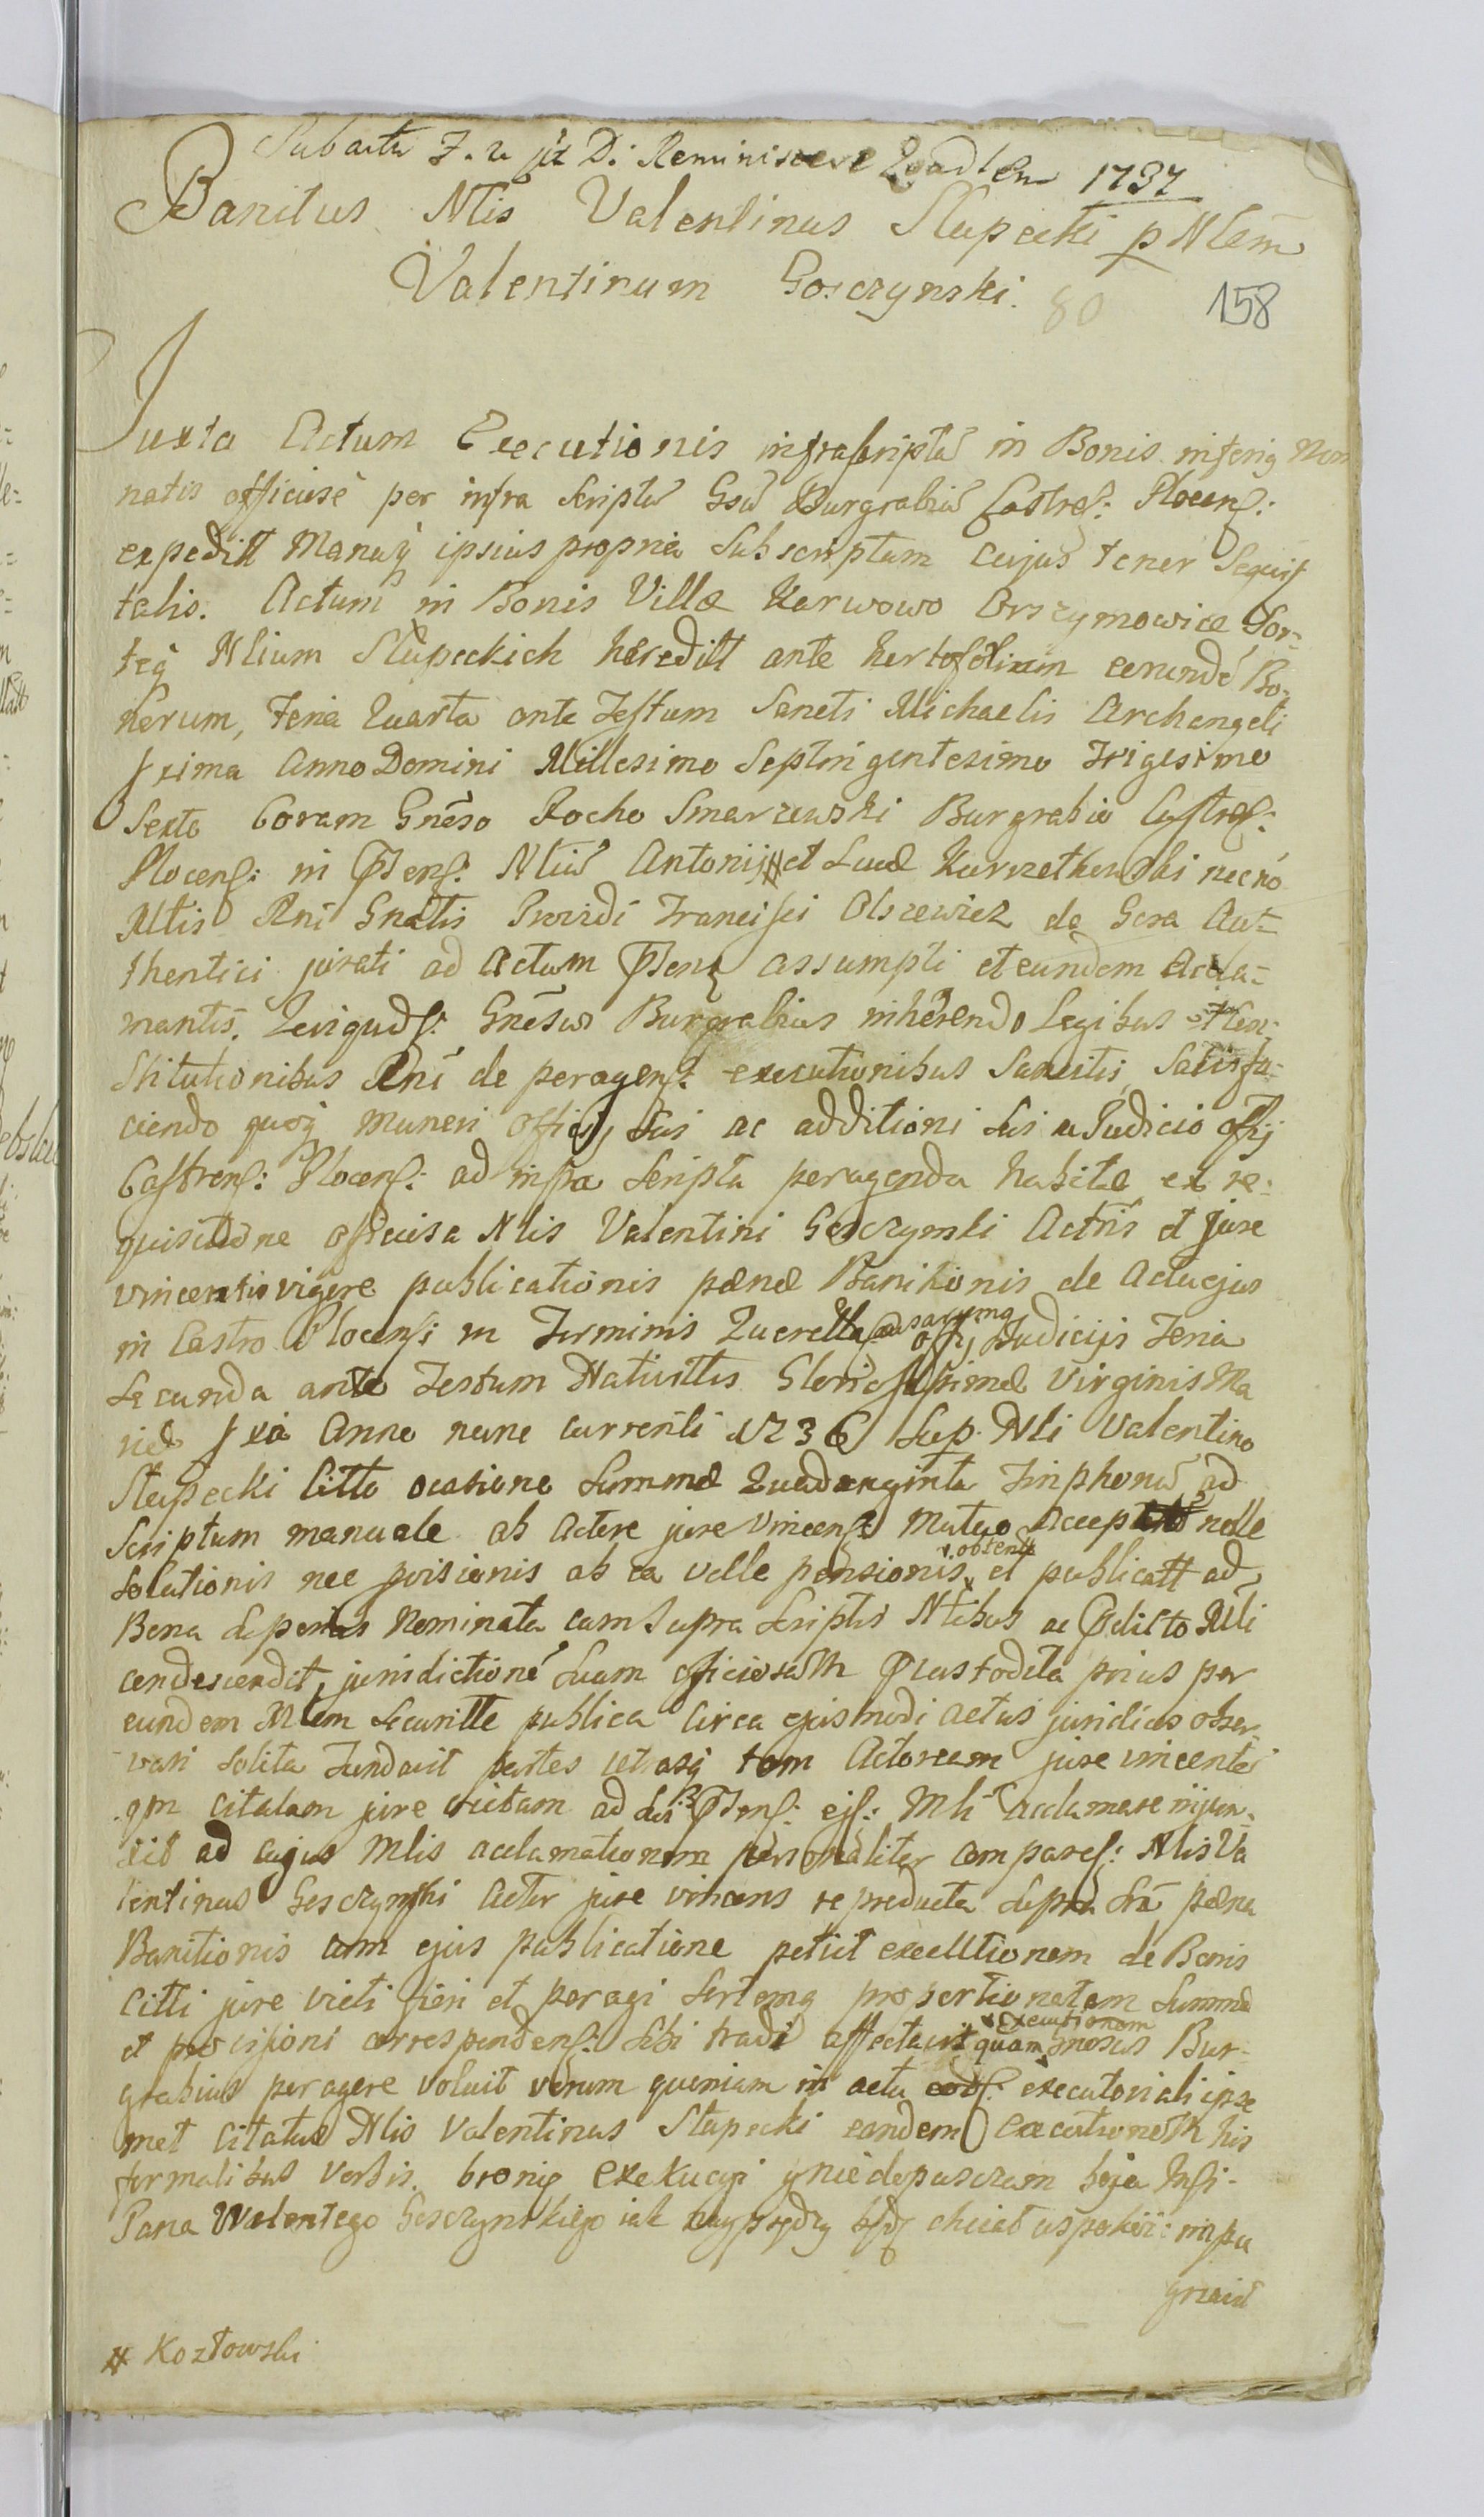 Sabatho F. r. pt D. Reminiscere Quadlem 1737
Banitus Nlis Valentinus Słupecki p Nlem
Valentinum Gosczynski. 80 158
Juxta Actum Executionis infrascriptũ in Bonis inferiq Nom
natis officiuse per infra scriptũ Gsũ Burgrabiũ Castreſ: Plocenſ:
expeditt Manuq ipsius propria Subscriptum cujus tenor Sequit
talis. Actum in Bonis Villæ Karwowo Orszymowice Sor-
teq Nlium Słupeckich hæreditt ante hortosolium eorundẽ Bo-
norum, Feria Quarta ante Festum Sancti Michaelis Archangeli
pxima Anno Domini Millesimo Septingentesimo Trigesimo
Sexto Coram Gnẽso Rocho Smarzewski Burgrabio Castreſ:
Plocenſ: in Pſenſ: Nliũ Antonij # et Lucæ Kurzetkowski necnõ
Mlis Rni Gnalis Providi Francisci Olszewicz de Gora Aut-
thentici jurati ad Actum Pſenſ assumpti et eundem Accla-
mantis. Quiquidſ: Gnẽsus Burgrabius inhærendo Legibus et Con-
stitutionibus Rni de peragenſ: executionibus Sancitis, Satisfa-
ciendo quoq muneri officij sui ac additioni sui a Judicio offij
Castrenſ: Plocenſ: ad infra scripta peragenda habitæ ex re-
quisitione officiosa Nlis Valentini Gosczynski Actris et jure
vincentis vigore publicationis pænæ Banitionis de Actu ejus
in Castro Plocenſi in Terminis Querellaꝝ ac sacrima offij Judicijs Feria
secunda ante Festum Nativittis Gloriosissimæ Virginis Ma
riæ pxa Anno nunc currenti 1736 Sup. Nli Valentino
Słupecki Citto occasione Summæ Quadraginta Tinphonũ ad
scriptum manuale ab Actore jure vincenſe Mutuo Accept nolle
solutionis nec provisionis ab ea velle pensionis v. obtentæ et publicatt ad
Bona superius Nominata cum Supra scriptis Nlibus ac Pdicto Mli
condescendit, jurisdictionẽ suam officiosam Pcustodita prius per
eundem Mlem securitte publica circa ejusmodi actus juridicos obser-
vari solita Fundavit partes utrasq tam Actoream jure vincentẽ
qm citatam jure victam ad sui Pſenſ: ejſ: Mli acclamare injun-
xit ad cujus Mlis acclamationem personaliter comparesſ: Nlis Va
lentinus Gosczynski Actor jure vincens reproducta supra Scrã pæna
Banitionis cum ejus publicatione petiit executionem de Bonis
Citti jure victi fieri et peragi Sortemq proportionatam Summæ
et provisioni correspondenſ: sibi tradi affectavit quam v. Executionem Gnosus Bur-
grabius peragere voluit verum quoniam in actu eodſ: executoriali ipse
met Citatus Nlis Valentinus Słupecki eandem Executionem his
formalibus verbis. bronię Exekucyi y nie dopusczam boja Jmſci-
Pana Walentego Gosczynskiego iak nayprędzy będę chciał uspokoić impu
gravit
# Kozłowski